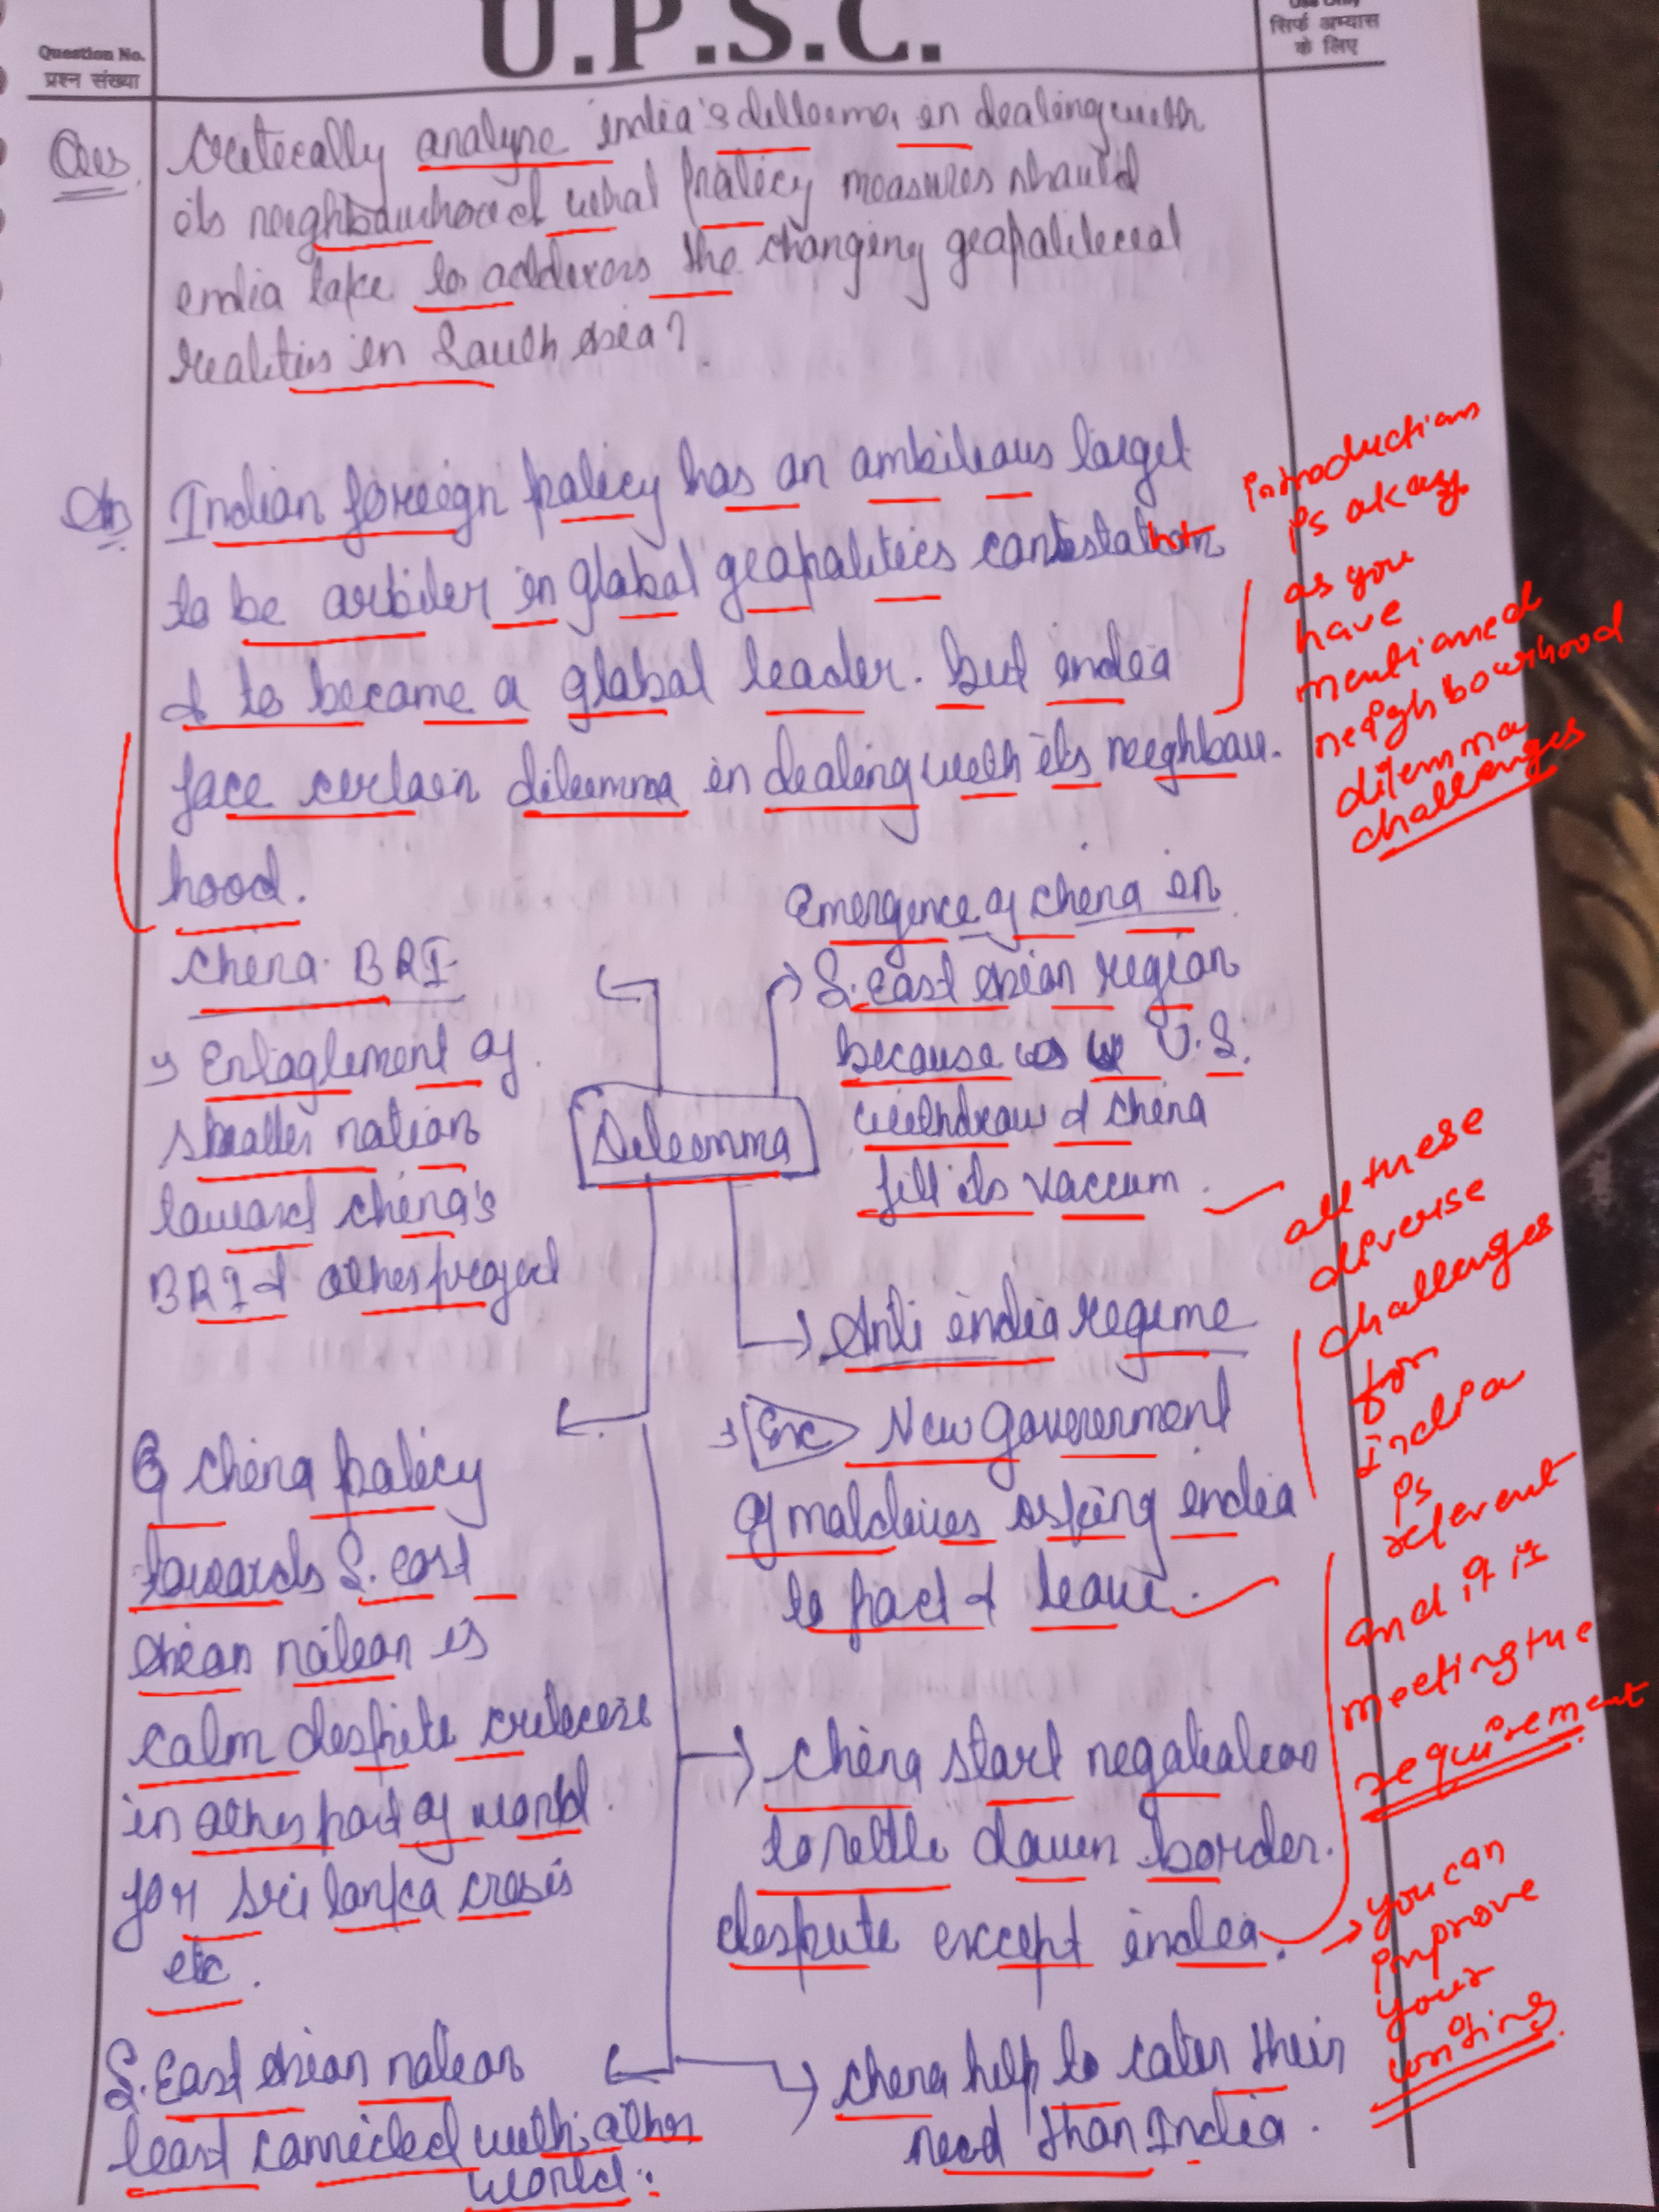 U.P.S.C.
Question No.
प्रश्न संख्या
Use Only
सिर्फ अभ्यास
के लिए
Ques. Critically analyse india's dilleema in dealing with
its neighbourhood what policy measures should
india take to address the changing geopolitical
realities in South Asia?
Ans Indian foreign policy has an ambitious target
to be arbiter in global geopolitics contestation
& to become a global leader. But india
face certain dileemma in dealing with its neighbou-
hood.
introduction
is okay
as you
have
mentioned
neighbourhood
dilemma
challenges
China BRI
→ Entaglement of
smaller nation
toward china's
BRI & other project
Emergence of china in
S. East Asian region
because as U.S.
withdraw & china
fill its vaccum.
Dileemma
Anti india regime
→ Ex New Goverernment
of maldives asking india
to pact & leave.
all these
diverse
challenges
for
india
is
relevent
and it is
meeting the
requirement
China policy
towards S. east
Asian nation is
calm despite criticism
in other part of world
for Sri lanka crisis
etc.
China start negotiation
to settle down border
dispute except india.
→ you can
improve
your
writing
S. East Asian nation
least connected with other
world.
China help to cater their
need than India.